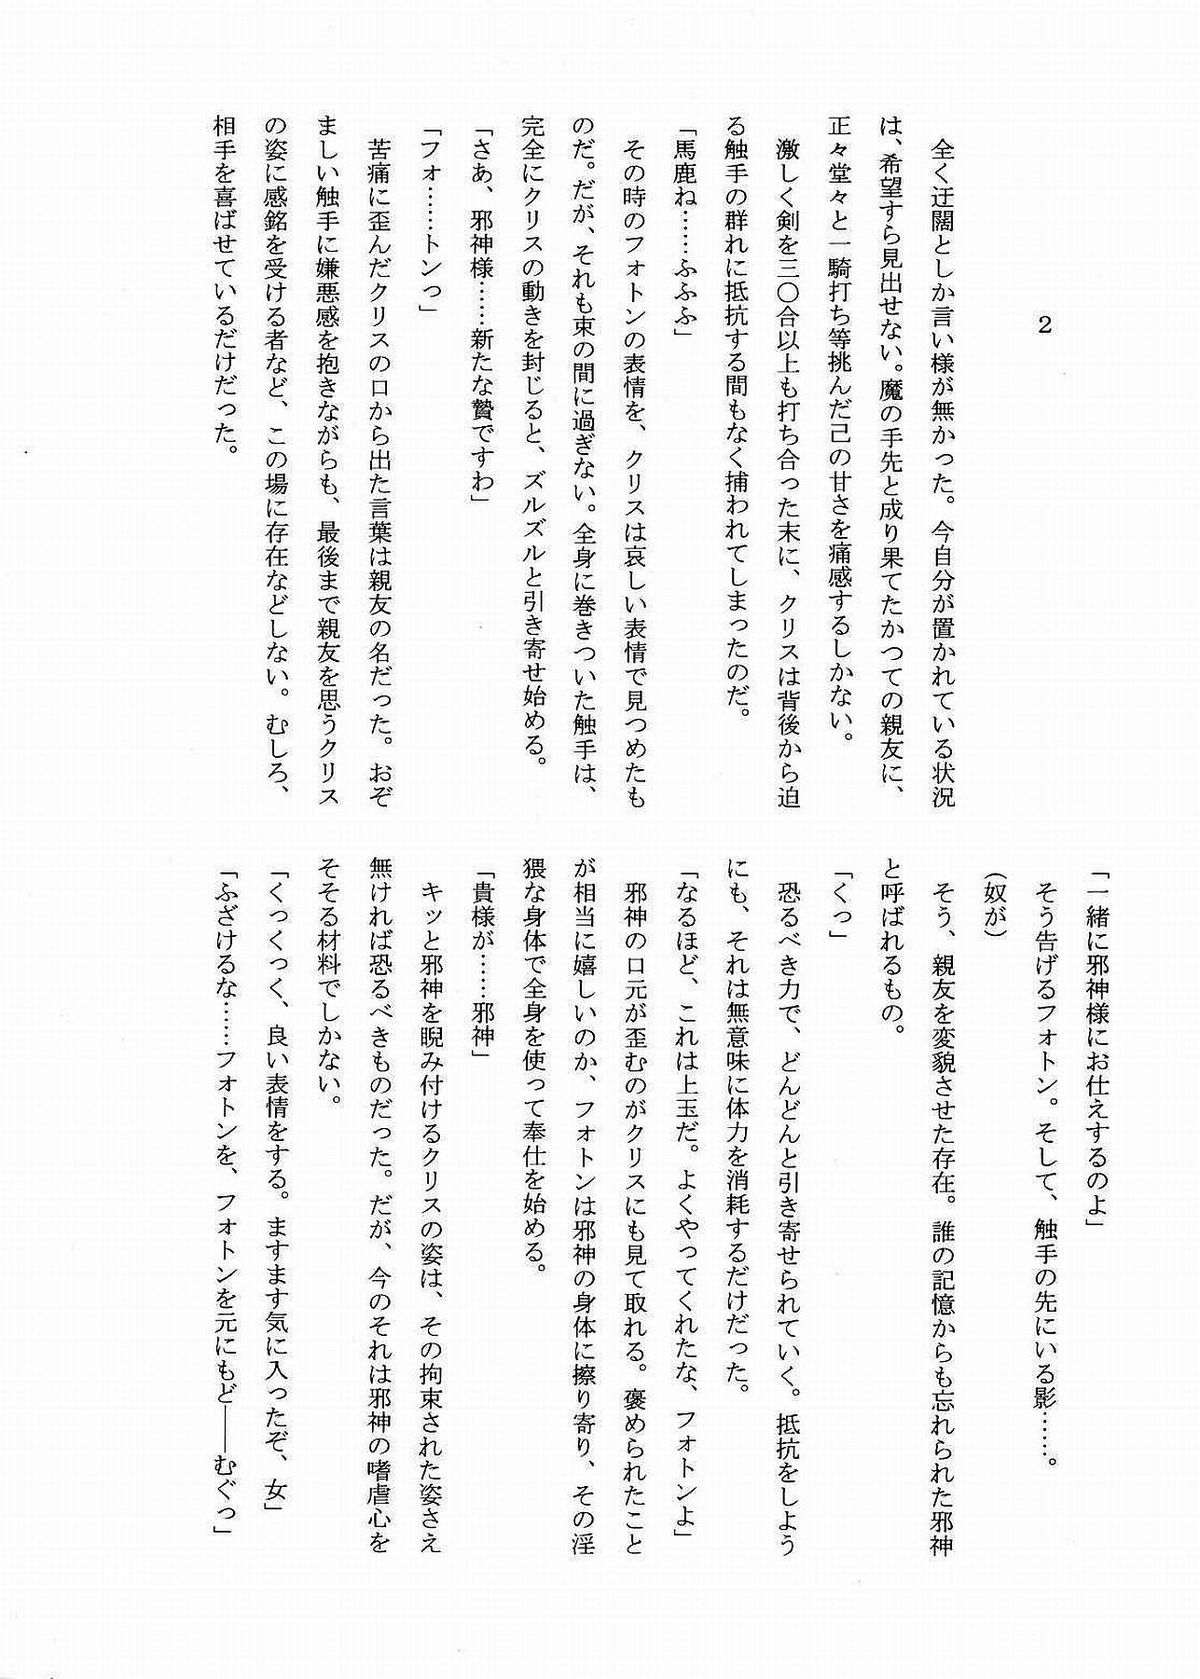 2
　全く迂闊としか言い様が無かった。今自分が置かれている状況
は、希望すら見出せない。魔の手先と成り果てたかつての親友に、
正々堂々と一騎打ち等挑んだ己の甘さを痛感するしかない。
　激しく剣を三〇合以上も打ち合った末に、クリスは背後から迫
る触手の群れに抵抗する間もなく捕われてしまったのだ。
「馬鹿ね……ふふふ」
　その時のフォトンの表情を、クリスは哀しい表情で見つめたも
のだ。だが、それも束の間に過ぎない。全身に巻きついた触手は、
完全にクリスの動きを封じると、ズルズルと引き寄せ始める。
「さあ、邪神様……新たな贄ですわ」
「フォ……トンっ」
　苦痛に歪んだクリスの口から出た言葉は親友の名だった。おぞ
ましい触手に嫌悪感を抱きながらも、最後まで親友を思うクリス
の姿に感銘を受ける者など、この場に存在などしない。むしろ、
相手を喜ばせているだけだった。
「一緒に邪神様にお仕えするのよ」
　そう告げるフォトン。そして、触手の先にいる影……。
（奴が）
　そう、親友を変貌させた存在。誰の記憶からも忘れられた邪神
と呼ばれるもの。
「くっ」
　恐るべき力で、どんどんと引き寄せられていく。抵抗をしよう
にも、それは無意味に体力を消耗するだけだった。
「なるほど、これは上玉だ。よくやってくれたな、フォトンよ」
　邪神の口元が歪むのがクリスにも見て取れる。褒められたこと
が相当に嬉しいのか、フォトンは邪神の身体に擦り寄り、その淫
猥な身体で全身を使って奉仕を始める。
「貴様が……邪神」
　キッと邪神を睨み付けるクリスの姿は、その拘束された姿さえ
無ければ恐るべきものだった。だが、今のそれは邪神の嗜虐心を
そそる材料でしかない。
「くっくっく、良い表情をする。ますます気に入ったぞ、女」
「ふざけるな……フォトンを、フォトンを元にもど――むぐっ」